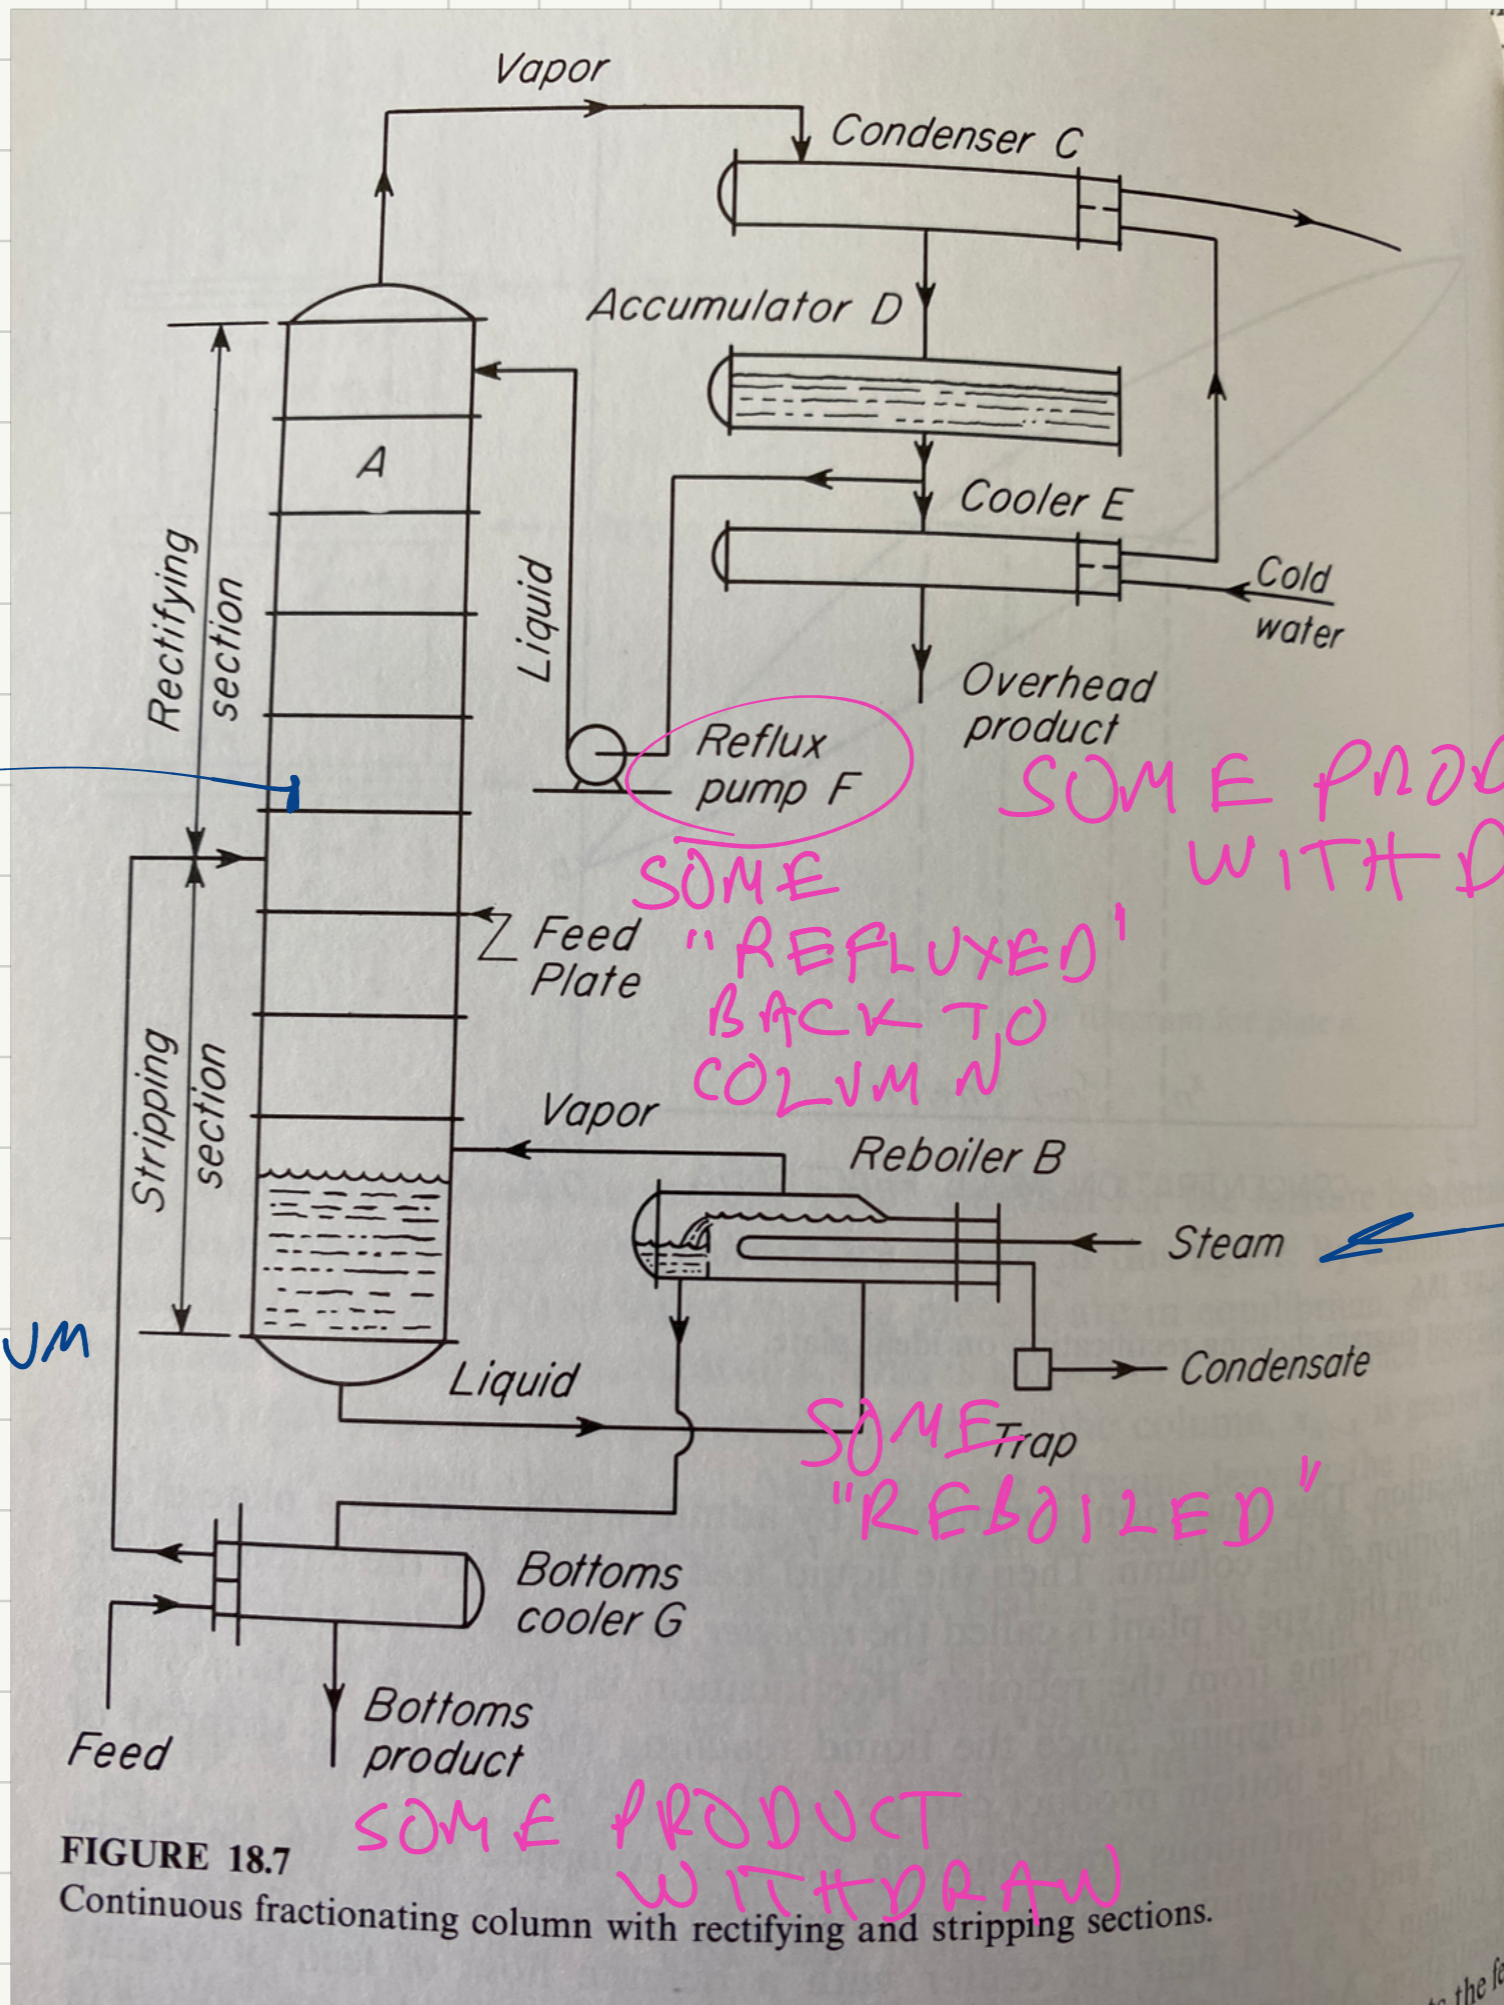 Vapor
Condenser C
Accumulator D
A
Cooler E
Cold
water
Rectifying
section
Liquid
Overhead
product
Reflux
pump F
SOME PROD
WITHD
SOME
"REFLUXED"
BACK TO
COLUMN
Feed
Plate
Stripping
section
Vapor
Reboiler B
Steam
UM
Liquid
Condensate
Trap
SOME
"REBOILED"
Bottoms
cooler G
Feed
Bottoms
product
SOME PRODUCT
WITHDRAW
FIGURE 18.7
Continuous fractionating column with rectifying and stripping sections.